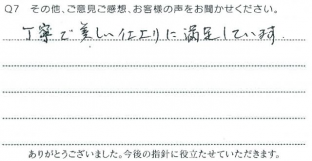 Q7 その他、ご意見ご感想、お客様の声をお聞かせください。
丁寧で美しい仕上りに満足しています。
ありがとうございました。今後の指針に役立たせていただきます。